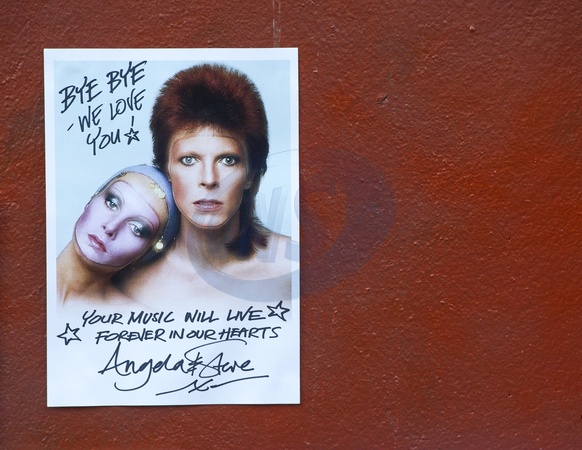 BYE BYE
- WE LOVE
YOU!
YOUR MUSIC WILL LIVE
FOREVER IN OUR HEARTS
Angela & Steve
x